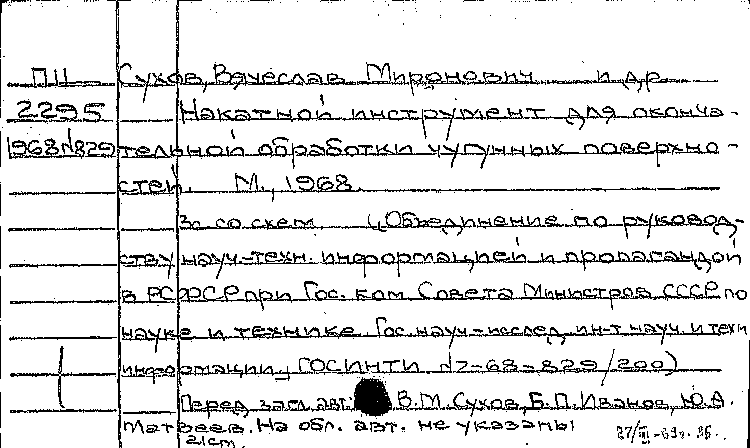 ПН Сухов, Вячеслав Миронович и др.
2295 Накатной инструмент для оконча-
1968№829 тельной обработки чугунных поверхно-
стей. М., 1968.
3с со схем. (Объединение по руковод-
ству науч-техн. информацией и пропагандой
в РСФСР при Гос. ком. Совета Министров СССР по
науке и технике. Гос. науч-исслед. ин-т науч. и техн
информации, ГОСИНТИ №7-68-829/200)
Перед загл. авт.: В.М. Сухов, Б.П. Иванов, Ю.А.
Матвеев. На обл. авт. не указаны